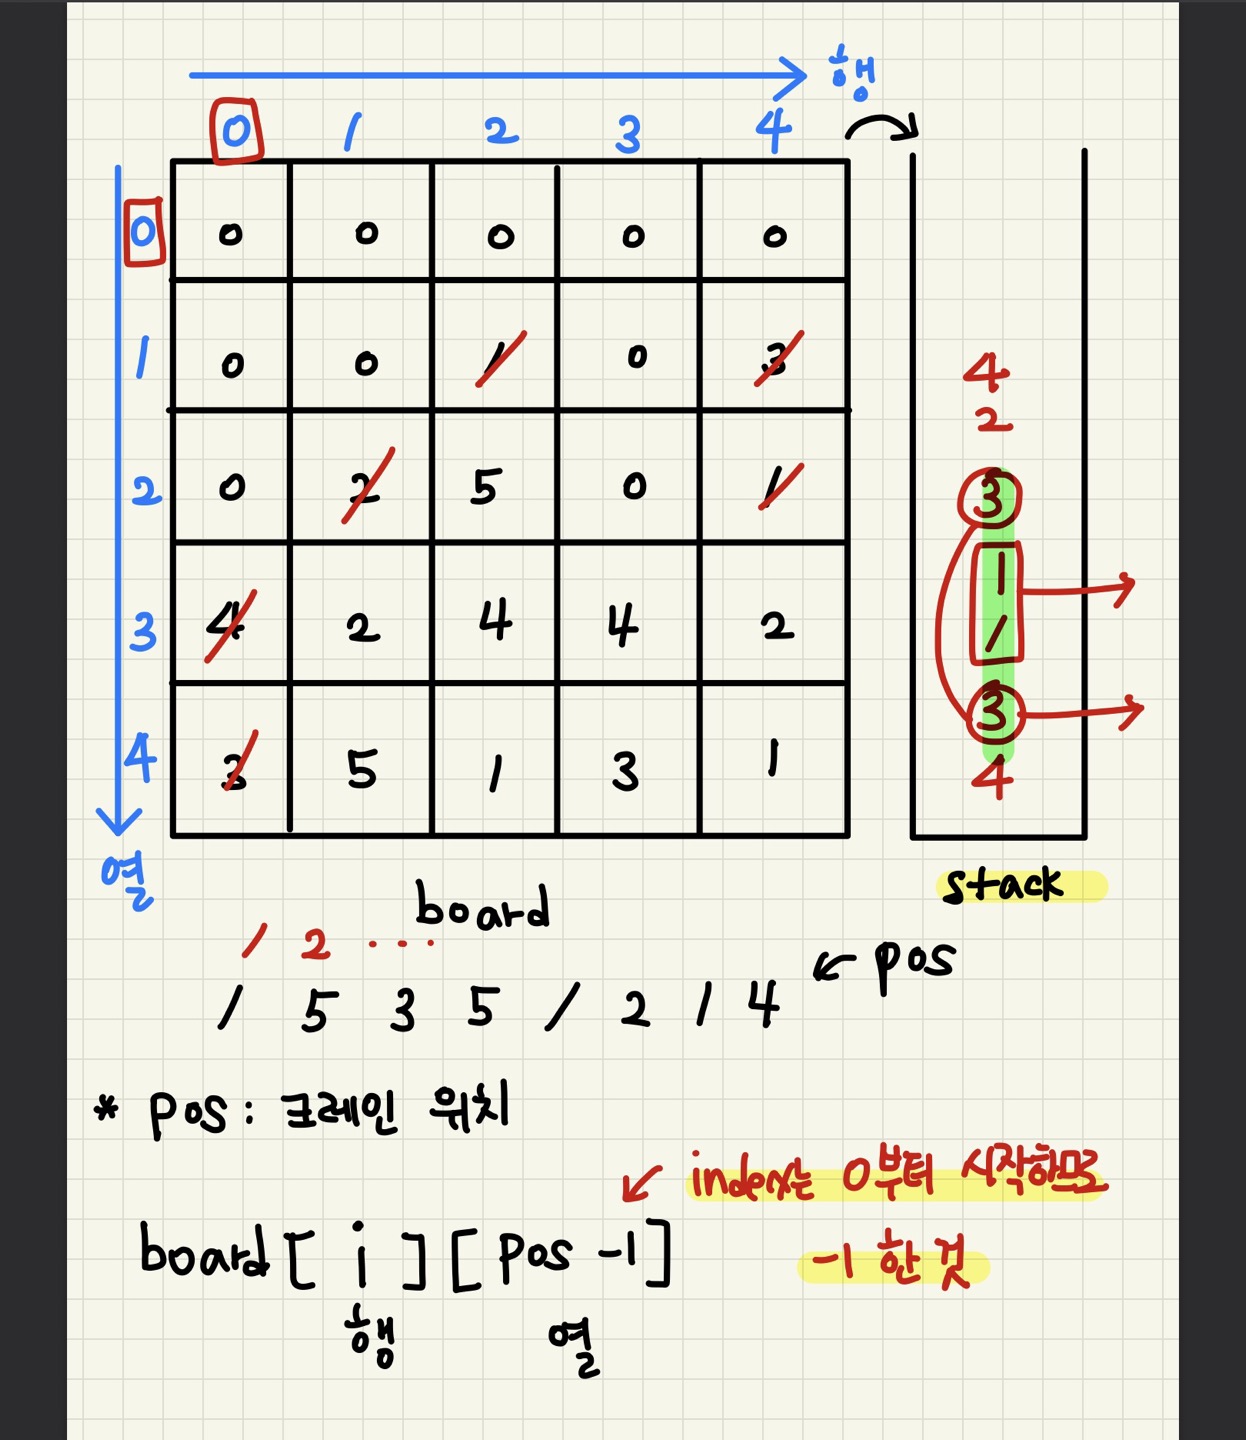 행
0 1 2 3 4
0 0 0 0 0 0
1 0 0 1 0 3
2 0 2 5 0 1
3 4 2 4 4 2
4 3 5 1 3 1
열
4
2
3
1
1
3
4
stack
board
1 2 ...
1 5 3 5 1 2 1 4 ← pos
* pos : 크레인 위치
index는 0부터 시작하므로
-1 한 것
board [ i ] [ pos -1 ]
행 열